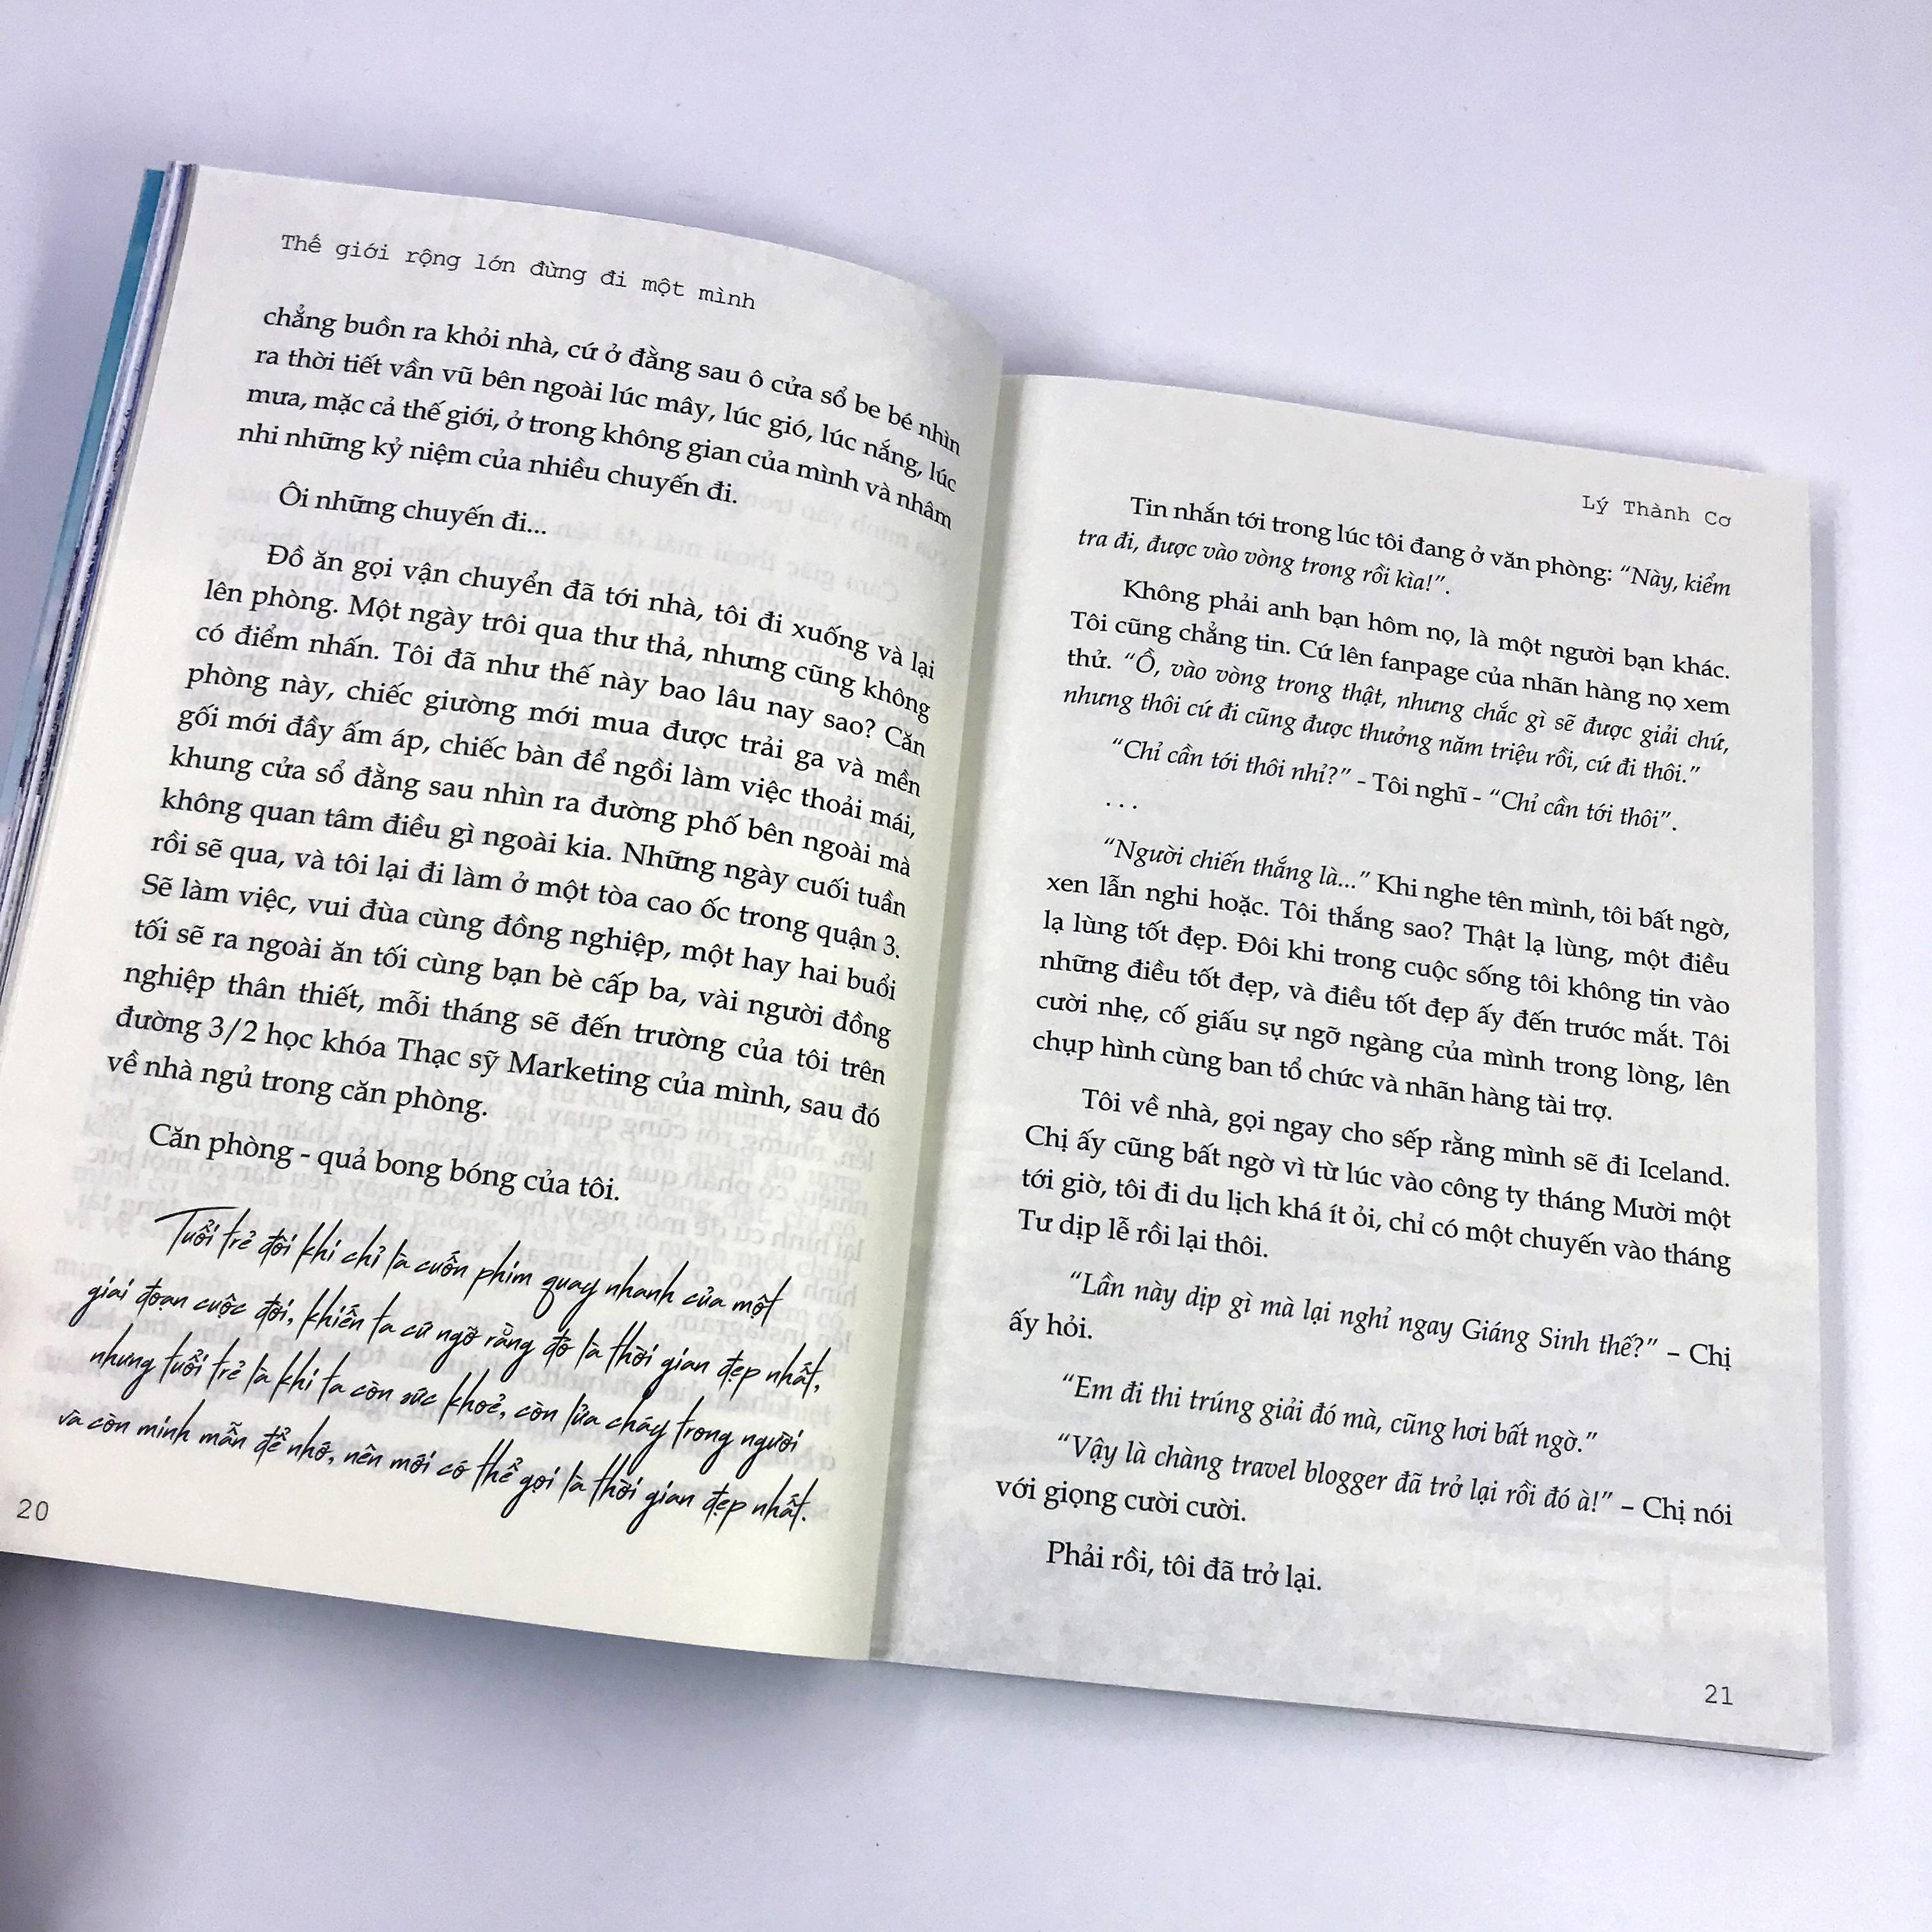 Thế giới rộng lớn đừng đi một mình
chẳng buồn ra khỏi nhà, cứ ở đằng sau ô cửa sổ be bé nhìn
ra thời tiết vần vũ bên ngoài lúc mây, lúc gió, lúc nắng, lúc
mưa, mặc cả thế giới, ở trong không gian của mình và nhâm
nhi những kỷ niệm của nhiều chuyến đi.
Ôi những chuyến đi...
Đồ ăn gọi vận chuyển đã tới nhà, tôi đi xuống và lại
lên phòng. Một ngày trôi qua thư thả, nhưng cũng không
có điểm nhấn. Tôi đã như thế này bao lâu nay sao? Căn
phòng này, chiếc giường mới mua được trải ga và mền
gối mới đầy ấm áp, chiếc bàn để ngồi làm việc thoải mái,
khung cửa sổ đằng sau nhìn ra đường phố bên ngoài mà
không quan tâm điều gì ngoài kia. Những ngày cuối tuần
rồi sẽ qua, và tôi lại đi làm ở một tòa cao ốc trong quận 3.
Sẽ làm việc, vui đùa cùng đồng nghiệp, một hay hai buổi
tối sẽ ra ngoài ăn tối cùng bạn bè cấp ba, vài người đồng
nghiệp thân thiết, mỗi tháng sẽ đến trường của tôi trên
đường 3/2 học khóa Thạc sỹ Marketing của mình, sau đó
về nhà ngủ trong căn phòng.
Căn phòng - quả bong bóng của tôi.
Tuổi trẻ đôi khi chỉ là cuốn phim quay nhanh của một
giai đoạn cuộc đời, khiến ta cứ ngỡ rằng đó là thời gian đẹp nhất,
nhưng tuổi trẻ là khi ta còn sức khoẻ, còn lửa cháy trong người
và còn minh mẫn để nhớ, nên mới có thể gọi là thời gian đẹp nhất.
20
Lý Thành Cơ
Tin nhắn tới trong lúc tôi đang ở văn phòng: “Này, kiểm
tra đi, được vào vòng trong rồi kìa!”.
Không phải anh bạn hôm nọ, là một người bạn khác.
Tôi cũng chẳng tin. Cứ lên fanpage của nhãn hàng nọ xem
thử. “Ồ, vào vòng trong thật, nhưng chắc gì sẽ được giải chứ,
nhưng thôi cứ đi cũng được thưởng năm triệu rồi, cứ đi thôi.”
“Chỉ cần tới thôi nhỉ?” - Tôi nghĩ - “Chỉ cần tới thôi”.
. . .
“Người chiến thắng là...” Khi nghe tên mình, tôi bất ngờ,
xen lẫn nghi hoặc. Tôi thắng sao? Thật lạ lùng, một điều
lạ lùng tốt đẹp. Đôi khi trong cuộc sống tôi không tin vào
những điều tốt đẹp, và điều tốt đẹp ấy đến trước mắt. Tôi
cười nhẹ, cố giấu sự ngỡ ngàng của mình trong lòng, lên
chụp hình cùng ban tổ chức và nhãn hàng tài trợ.
Tôi về nhà, gọi ngay cho sếp rằng mình sẽ đi Iceland.
Chị ấy cũng bất ngờ vì từ lúc vào công ty tháng Mười một
tới giờ, tôi đi du lịch khá ít ỏi, chỉ có một chuyến vào tháng
Tư dịp lễ rồi lại thôi.
“Lần này dịp gì mà lại nghỉ ngay Giáng Sinh thế?” – Chị
ấy hỏi.
“Em đi thi trúng giải đó mà, cũng hơi bất ngờ.”
“Vậy là chàng travel blogger đã trở lại rồi đó à!” – Chị nói
với giọng cười cười.
Phải rồi, tôi đã trở lại.
21